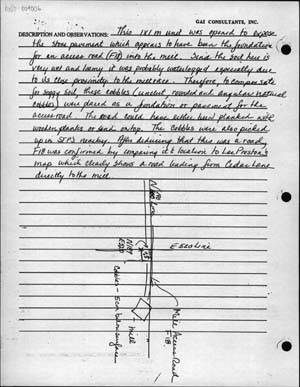 GAI CONSULTANTS, INC.
DESCRIPTION AND OBSERVATIONS: This 1x1 m unit was opened to expose
the stone pavement which appears to have been the foundation
for an access road (F18) into the mill. Since the soil here is
very wet and loamy it was probably waterlogged especially due
to its close proximity to the millrace. Therefore, to compensate
for soggy soil, these cobbles (uncut, rounded and angular natural
cobbles) were placed as a foundation or pavement for the
access road. The road could have either been planked with
wooden planks or sand on top. The cobbles were also picked
up in STP's nearby. After deducing that this was a road,
F18 was confirmed by comparing its location to Lee Preston's
map which clearly shows a road leading from Cedar Lane
directly to the mill.
E500 line
Mill Access Road
F18
mill
cobbles - 5cm below surface